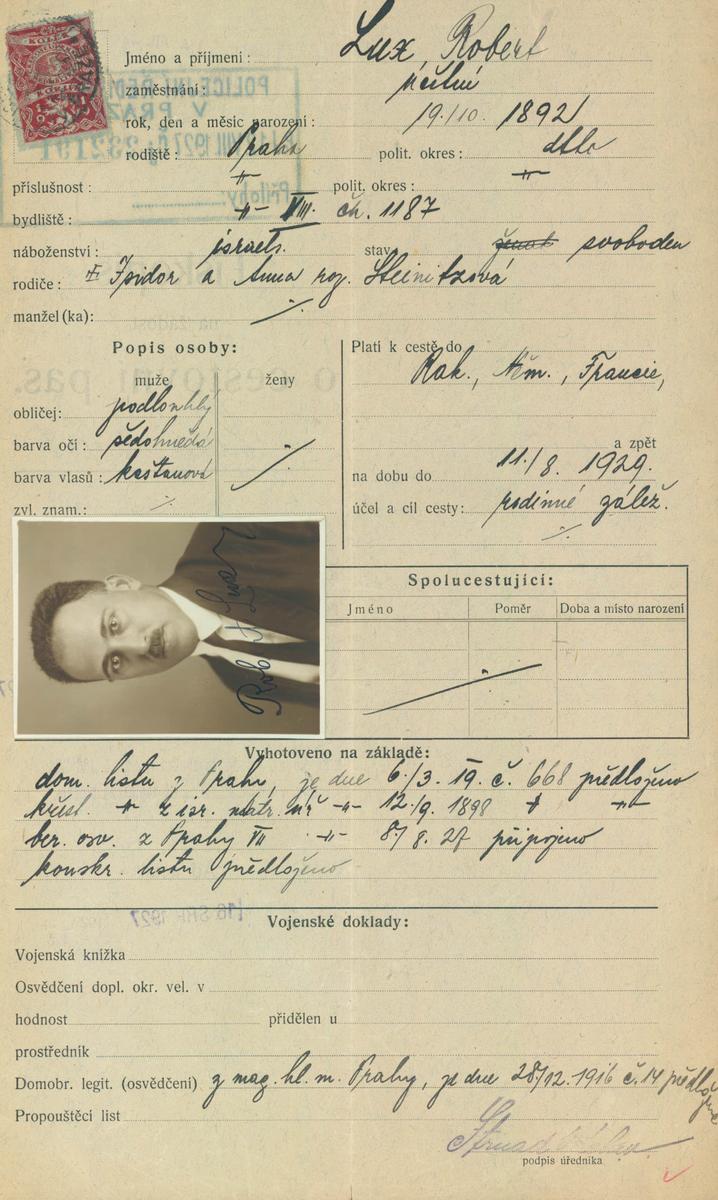 Jméno a příjmení: Lux, Robert
zaměstnání: účetní
rok, den a měsíc narození: 19./10. 1892
rodiště: Praha polit. okres: dtto
příslušnost: -"- polit. okres: -"-
bydliště: -"- VII. čp. 1187
náboženství: israel. stav ženat svoboden
rodiče: Isidor a Anna roz. Steinitzová
manžel(ka): ./.
Popis osoby:
muže ženy
obličej: podlouhlý
barva očí: šedohnědá ./.
barva vlasů: kaštanová
zvl. znam.: ./.
Platí k cestě do
Rak., Něm., Francie,
a zpět
na dobu do 11./8. 1929.
účel a cíl cesty: rodinné zálež.
./.
Robert Lux
Spolucestující:
Jméno Poměr Doba a místo narození
Vyhotoveno na základě:
dom. listu z Prahy, ze dne 6./3. 19. č. 668 předloženo
křest. -"- z isr. matr. -"- 12./9. 1898 -"-
ber. osv. z Prahy VII -"- 8/8. 27 připojeno
konskr. listu předloženo
16 SRP 1927
Vojenské doklady:
Vojenská knížka
Osvědčení dopl. okr. vel. v
hodnost přidělen u
prostředník
Domobr. legit. (osvědčení) z mag. hl. m. Prahy, ze dne 28/12. 1916 č. 14 předloženo
Propouštěcí list
podpis úředníka